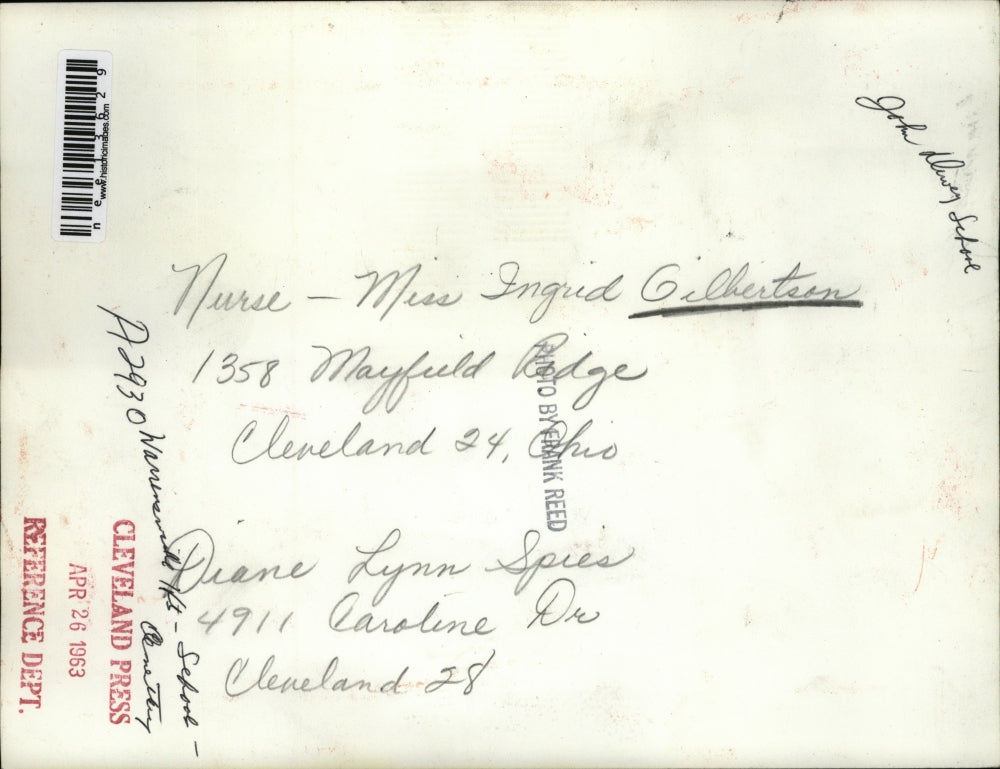 John Dewey School
nee13629
www.historicimages.com
Nurse - Miss Ingrid Gilbertson
1358 Mayfield Ridge
Cleveland 24, Ohio
PHOTO BY FRANK REED
Diane Lynn Spies
4911 Caroline Dr
Cleveland 28
A2930 Warrensville Hts - School -
CLEVELAND PRESS
APR 26 1963
REFERENCE DEPT.